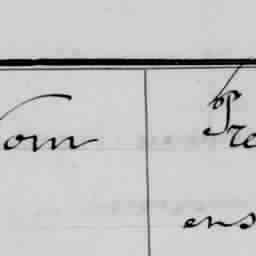 Nom
Pro
ens